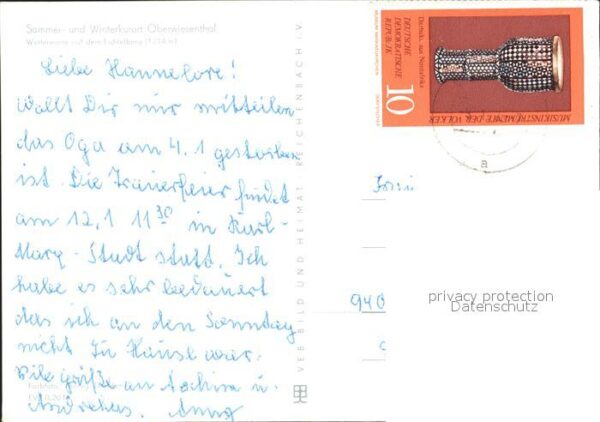 Sommer- und Winterkurort Oberwiesenthal
Wetterwarte auf dem Fichtelberg (1214 m)
Liebe Hannelore!
Wollt Dir nur mitteilen
das Oga am 4.1 gestorben
ist. Die Trauerfeier findet
am 12.1 11 30 in Karl-
Marx-Stadt statt. Ich
habe es sehr bedauert
das ich an den Sonntag
nicht zu Hause war.
Vile grüße an Achim u.
VEB BILD UND HEIMAT REICHENBACH i. V.
Darbuka, aus Nordafrika
DEUTSCHE
DEMOKRATISCHE
REPUBLIK
10
MUSIKINSTRUMENTE DER VÖLKER
a
Frau
940
privacy protection
Datenschutz